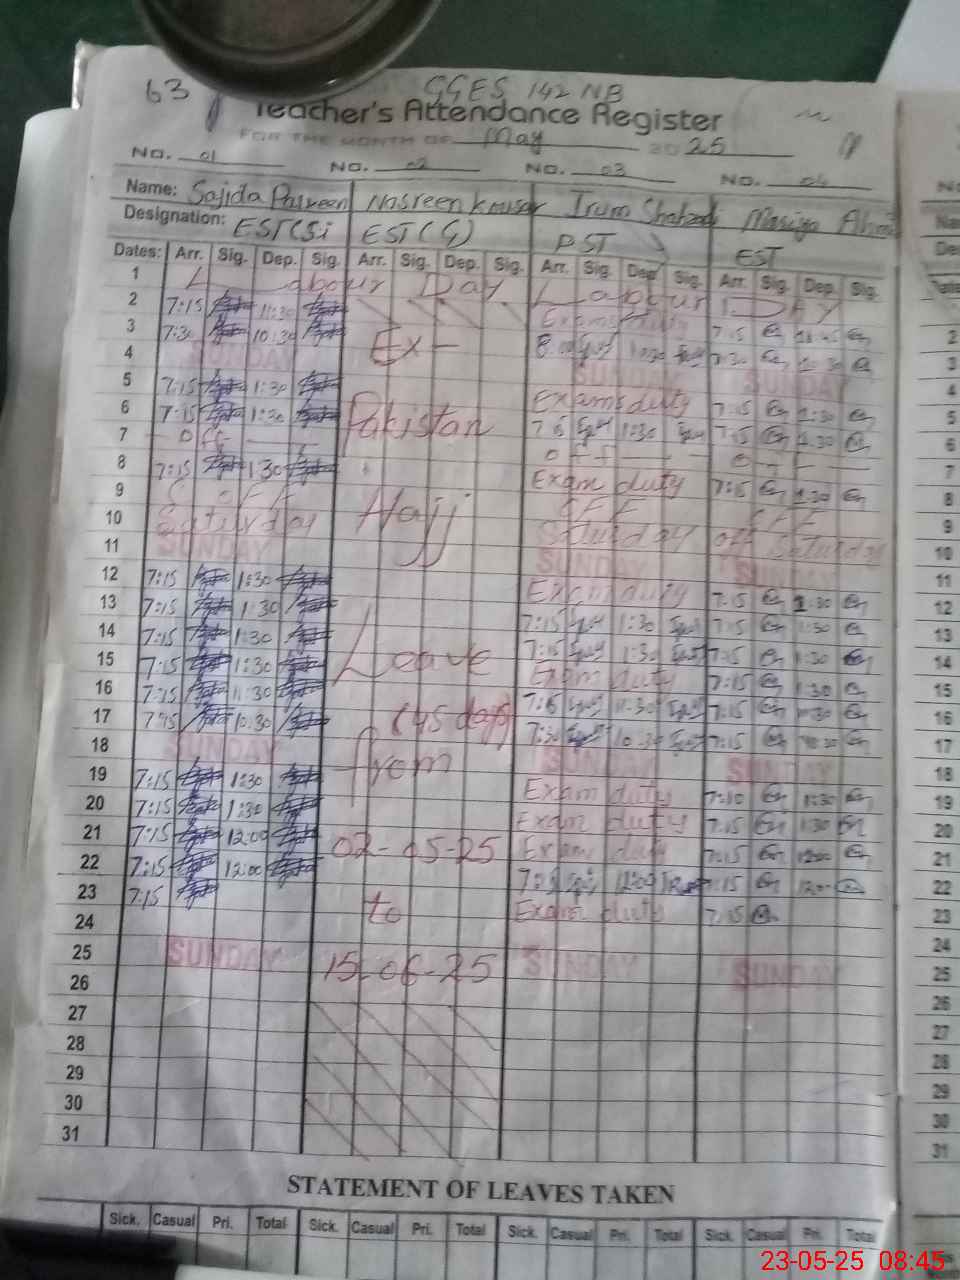 63 GGES 142 NB
Teacher's Attendance Register
FOR THE MONTH OF May 2025
No. 01 No. 02 No. 03 No. 04
Name: Sajida Parveen Nasreen Kousar Irum Shahzadi Mariya
Designation: EST(S EST(G) PST EST
Dates: Arr. Sig. Dep. Sig. Arr. Sig. Dep. Sig. Arr. Sig. Dep. Sig. Arr. Sig. Dep. Sig.
1 Labour Day Labour DAY
2 7:15 11:30 Exams duty 7:15
3 7:30 10:30 Ex- 8:00 10:30 7:30 2
4 SUNDAY SUNDAY SUNDAY 3
5 7:15 1:30 Exams duty 7:15 1:30 4
6 7:15 1:30 Pakistan 7:15 1:30 7:15 1:30 5
7 off off 6
8 7:15 1:30 Exam duty 7:15 1:30 7
9 OFF Hajj OFF OFF 8
10 Saturday Saturday off Saturday 9
11 SUNDAY SUNDAY SUNDAY 10
12 7:15 1:30 Exam duty 7:15 1:30 11
13 7:15 1:30 7:15 1:30 7:15 1:30 12
14 7:15 1:30 7:15 1:30 7:15 1:30 13
15 7:15 1:30 Leave Exam duty 7:15 1:30 14
16 7:15 11:30 7:15 11:30 7:15 15
17 7:15 10:30 (45 days) 7:30 10:30 7:15 10:30 16
18 SUNDAY from SUNDAY SUNDAY 17
19 7:15 1:30 Exam duty 7:10 1:30 18
20 7:15 1:30 Exam duty 7:15 1:30 19
21 7:15 12:00 02-05-25 Exam duty 7:15 12:00 20
22 7:15 12:00 7:15 12:00 7:15 12:00 21
23 7:15 to Exam duty 7:15 22
24 23
25 SUNDAY 15-06-25 SUNDAY SUNDAY 24
26 25
27 26
28 27
29 28
30 29
31 30
31
STATEMENT OF LEAVES TAKEN
Sick. Casual Pri. Total Sick. Casual Pri. Total Sick. Casual Pri. Total Sick. Casual Pri. Total
23-05-25 08:45